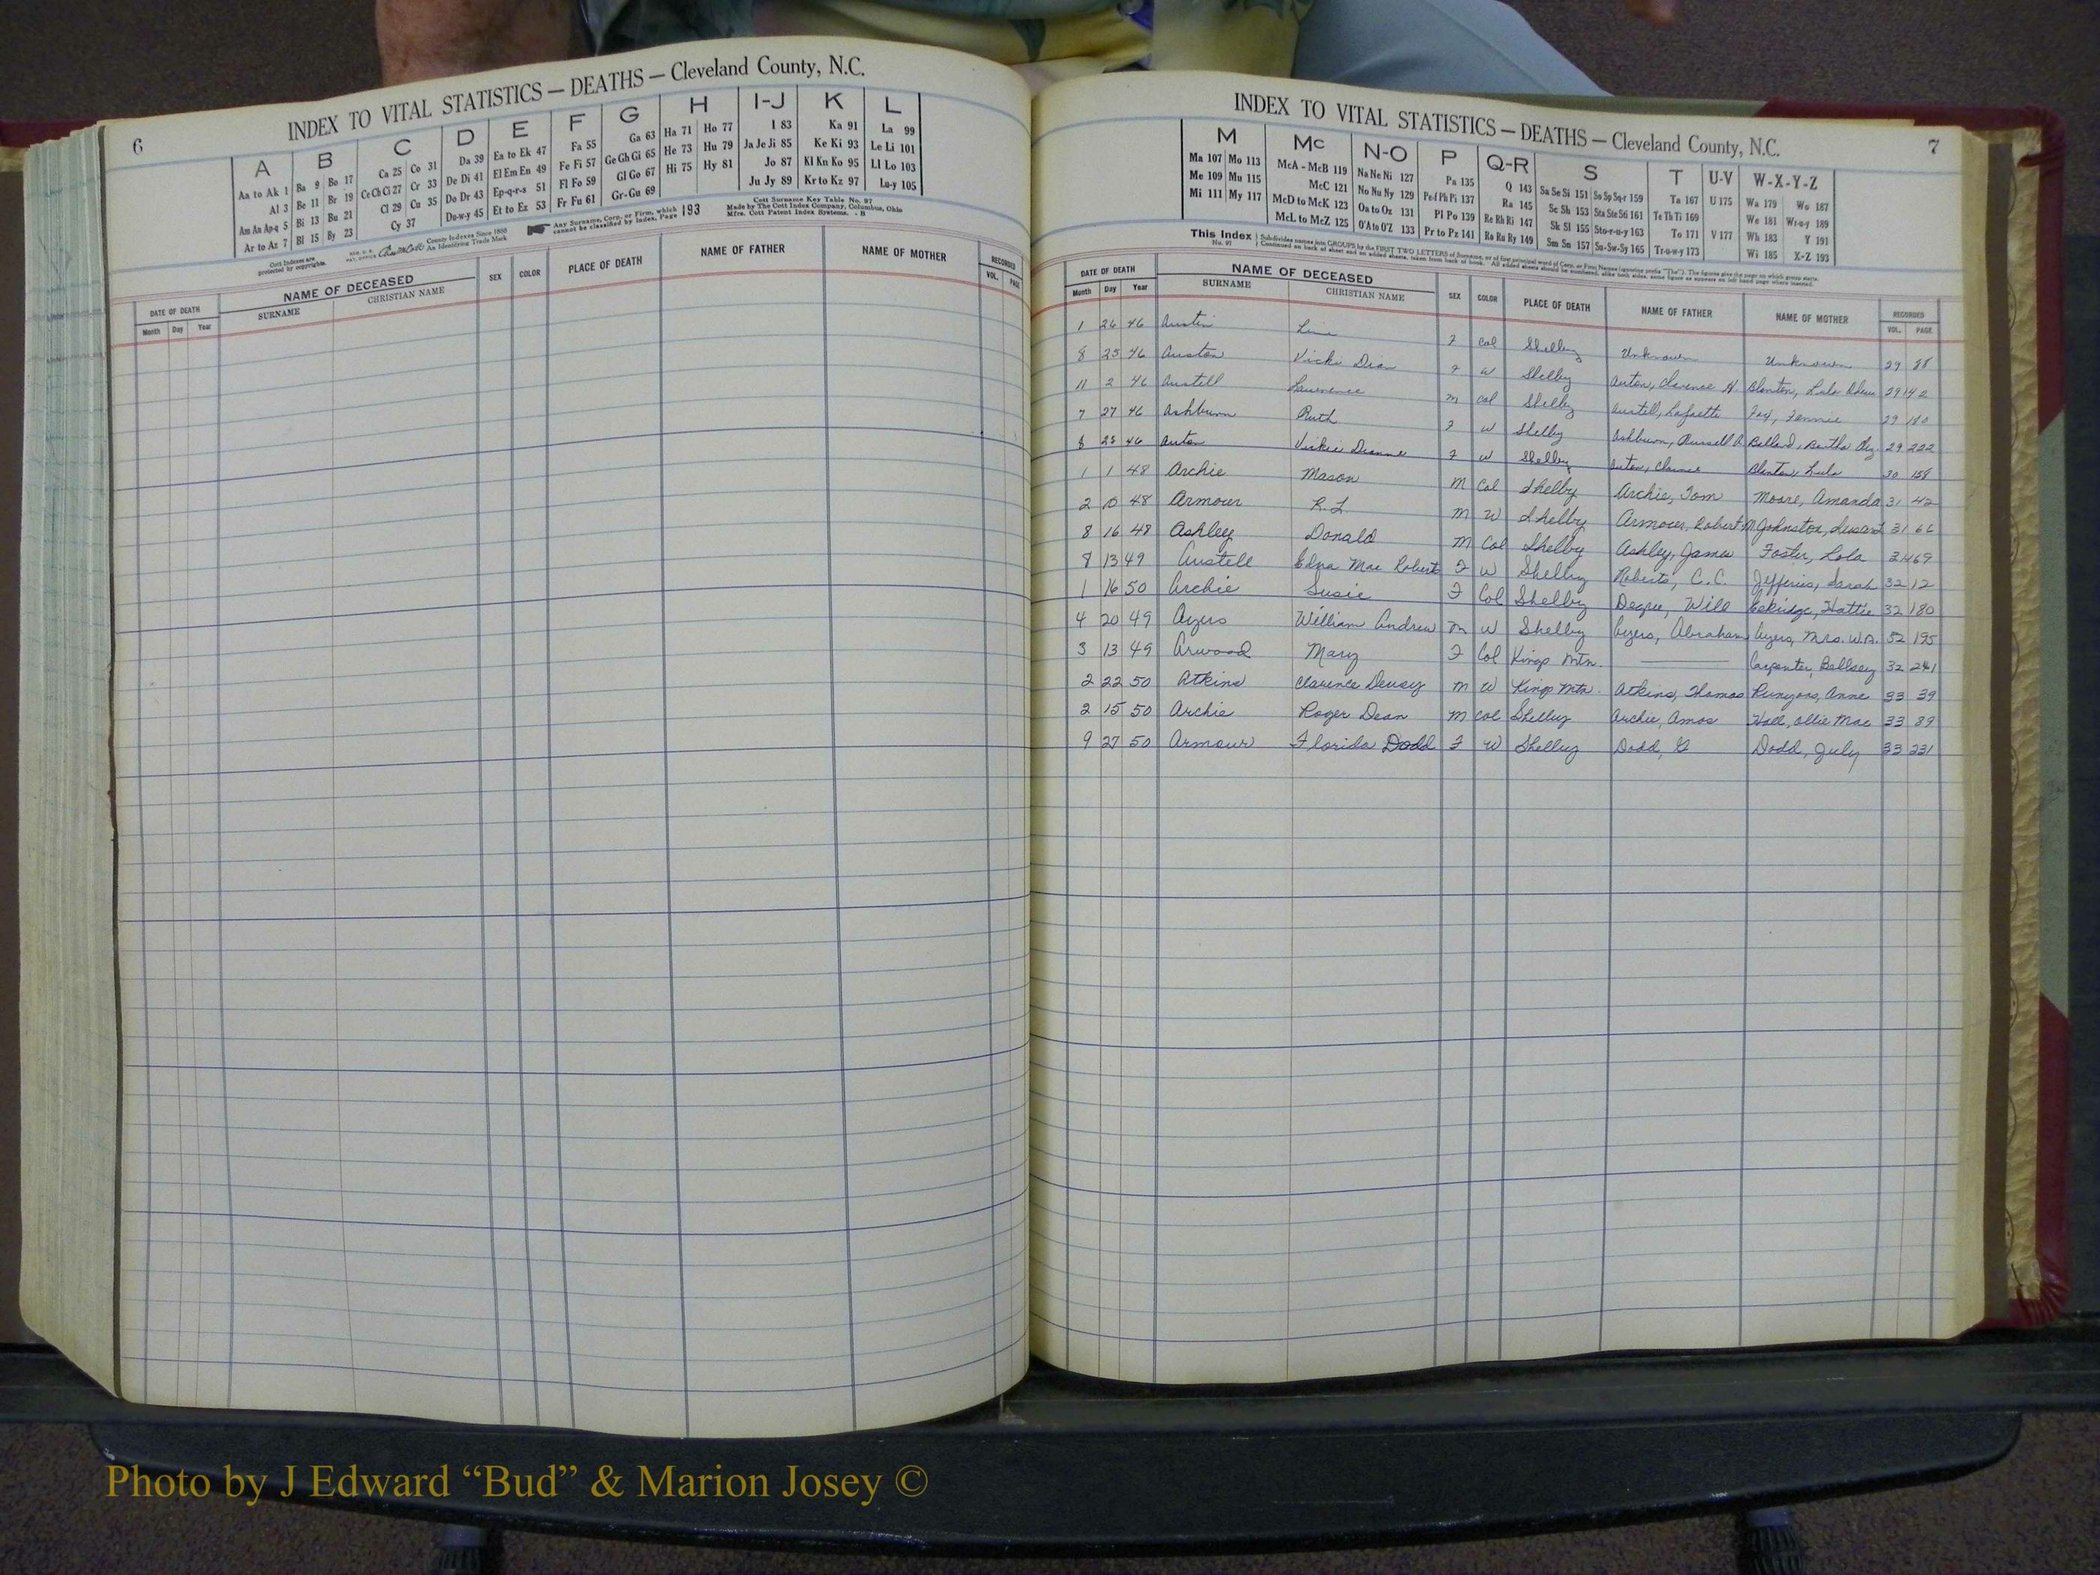 6
INDEX TO VITAL STATISTICS — DEATHS — Cleveland County, N.C.
A B C D E F G H I-J K L
Aa to Ak 1 Ba 9 Bo 17 Ca 25 Co 31 Da 39 Ea to Ek 47 Fa 55 Ga 63 Ha 71 Ho 77 I 83 Ka 91 La 99
Al 3 Be 11 Br 19 Ce Ch Ci 27 Cr 33 De Di 41 El Em En 49 Fe Fi 57 Ge Gh Gi 65 He 73 Hu 79 Ja Je Ji 85 Ke Ki 93 Le Li 101
Am An Ap-q 5 Bi 13 Bu 21 Cl 29 Cu 35 Do Dr 43 Ep-q-r-s 51 Fl Fo 59 Gl Go 67 Hi 75 Hy 81 Jo 87 Kl Kn Ko 95 Ll Lo 103
Ar to Az 7 Bl 15 By 23 Cy 37 Du-w-y 45 Et to Ez 53 Fr Fu 61 Gr-Gu 69 Ju Jy 89 Kr to Kz 97 Lu-y 105
Cott Indexes are protected by copyrights.
County Indexes Since 1888
An Identifying Trade Mark
Any Surname, Corp. or Firm, which cannot be classified by Index, Page 193
Cott Surname Key Table No. 97
Made by The Cott Index Company, Columbus, Ohio
Mfrs. Cott Patent Index Systems. - B
DATE OF DEATH NAME OF DECEASED SEX COLOR PLACE OF DEATH NAME OF FATHER NAME OF MOTHER RECORDED
Month Day Year SURNAME CHRISTIAN NAME VOL. PAGE
INDEX TO VITAL STATISTICS — DEATHS — Cleveland County, N.C.
7
M Mc N-O P Q-R S T U-V W-X-Y-Z
Ma 107 Mo 113 McA - McB 119 Na Ne Ni 127 Pa 135 Q 143 Sa Se Si 151 So Sp Sq-r 159 Ta 167 U 175 Wa 179 Wo 187
Me 109 Mu 115 McC 121 No Nu Ny 129 Pe-f Ph Pi 137 Ra 145 Sc Sh 153 Sta Ste Sti 161 Te Th Ti 169 We 181 Wr-u-y 189
Mi 111 My 117 McD to McK 123 Oa to Oz 131 Pl Po 139 Re Rh Ri 147 Sk Sl 155 Sto-r-u-y 163 To 171 V 177 Wh 183 Y 191
McL to McZ 125 O'A to O'Z 133 Pr to Pz 141 Ro Ru Ry 149 Sm Sn 157 Su-Sw-Sy 165 Tr-u-w-y 173 Wi 185 X-Z 193
This Index No. 97
Subdivides names into GROUPS by the FIRST TWO LETTERS of Surname, or of first principal word of Corp. or Firm Names (ignoring prefix "The"). The figures give the page on which group starts.
Continued on back of sheet and on added sheets, taken from back of book. All added sheets should be numbered, alike both sides, same figure as appears on left hand page where inserted.
DATE OF DEATH NAME OF DECEASED SEX COLOR PLACE OF DEATH NAME OF FATHER NAME OF MOTHER RECORDED
Month Day Year SURNAME CHRISTIAN NAME VOL. PAGE
1 26 46 Austin F Col Shelby Unknown Unknown 29 88
8 25 46 Auston Vicki Dian F W Shelby Auton, Clarence H. Blanton, Lula 29 142
11 2 46 Austell Lawrence M Col Shelby Austell, Lafaette Fay, Fannie 29 180
7 27 46 Ashburn Ruth F W Shelby Ashburn, Russell A. Ballard, Bertha 29 222
8 25 46 Auton Vickie Dianne F W Shelby Auton, Clarence Blanton, Lula 30 158
1 1 48 Archie Mason M Col Shelby Archie, Tom Moore, Amanda 31 42
2 10 48 Armour R.L. M W Shelby Armour, Robert M. Johnston, 31 66
8 16 48 Ashley Donald M Col Shelby Ashley, James Foster, Lola 31 469
8 13 49 Austell Edna Mae Roberts F W Shelby Roberts, C.C. Jefferies, Sarah 32 12
1 16 50 Archie Susie F Col Shelby Degree, Will Eskridge, Hattie 32 180
4 20 49 Ayers William Andrew M W Shelby Ayers, Abraham Ayers, Mrs. W.A. 32 195
3 13 49 Arwood Mary F Col Kings Mtn. ——— Carpenter, Bellsey 32 241
2 22 50 Atkins Clarence Dewey M W Kings Mtn. Atkins, Thomas Runyans, Anne 33 39
2 15 50 Archie Roger Dean M Col Shelby Archie, Amos Hall, Ollie Mae 33 89
9 27 50 Armour Florida Dodd F W Shelby Dodd, G Dodd, July 33 231
Photo by J Edward “Bud” & Marion Josey ©